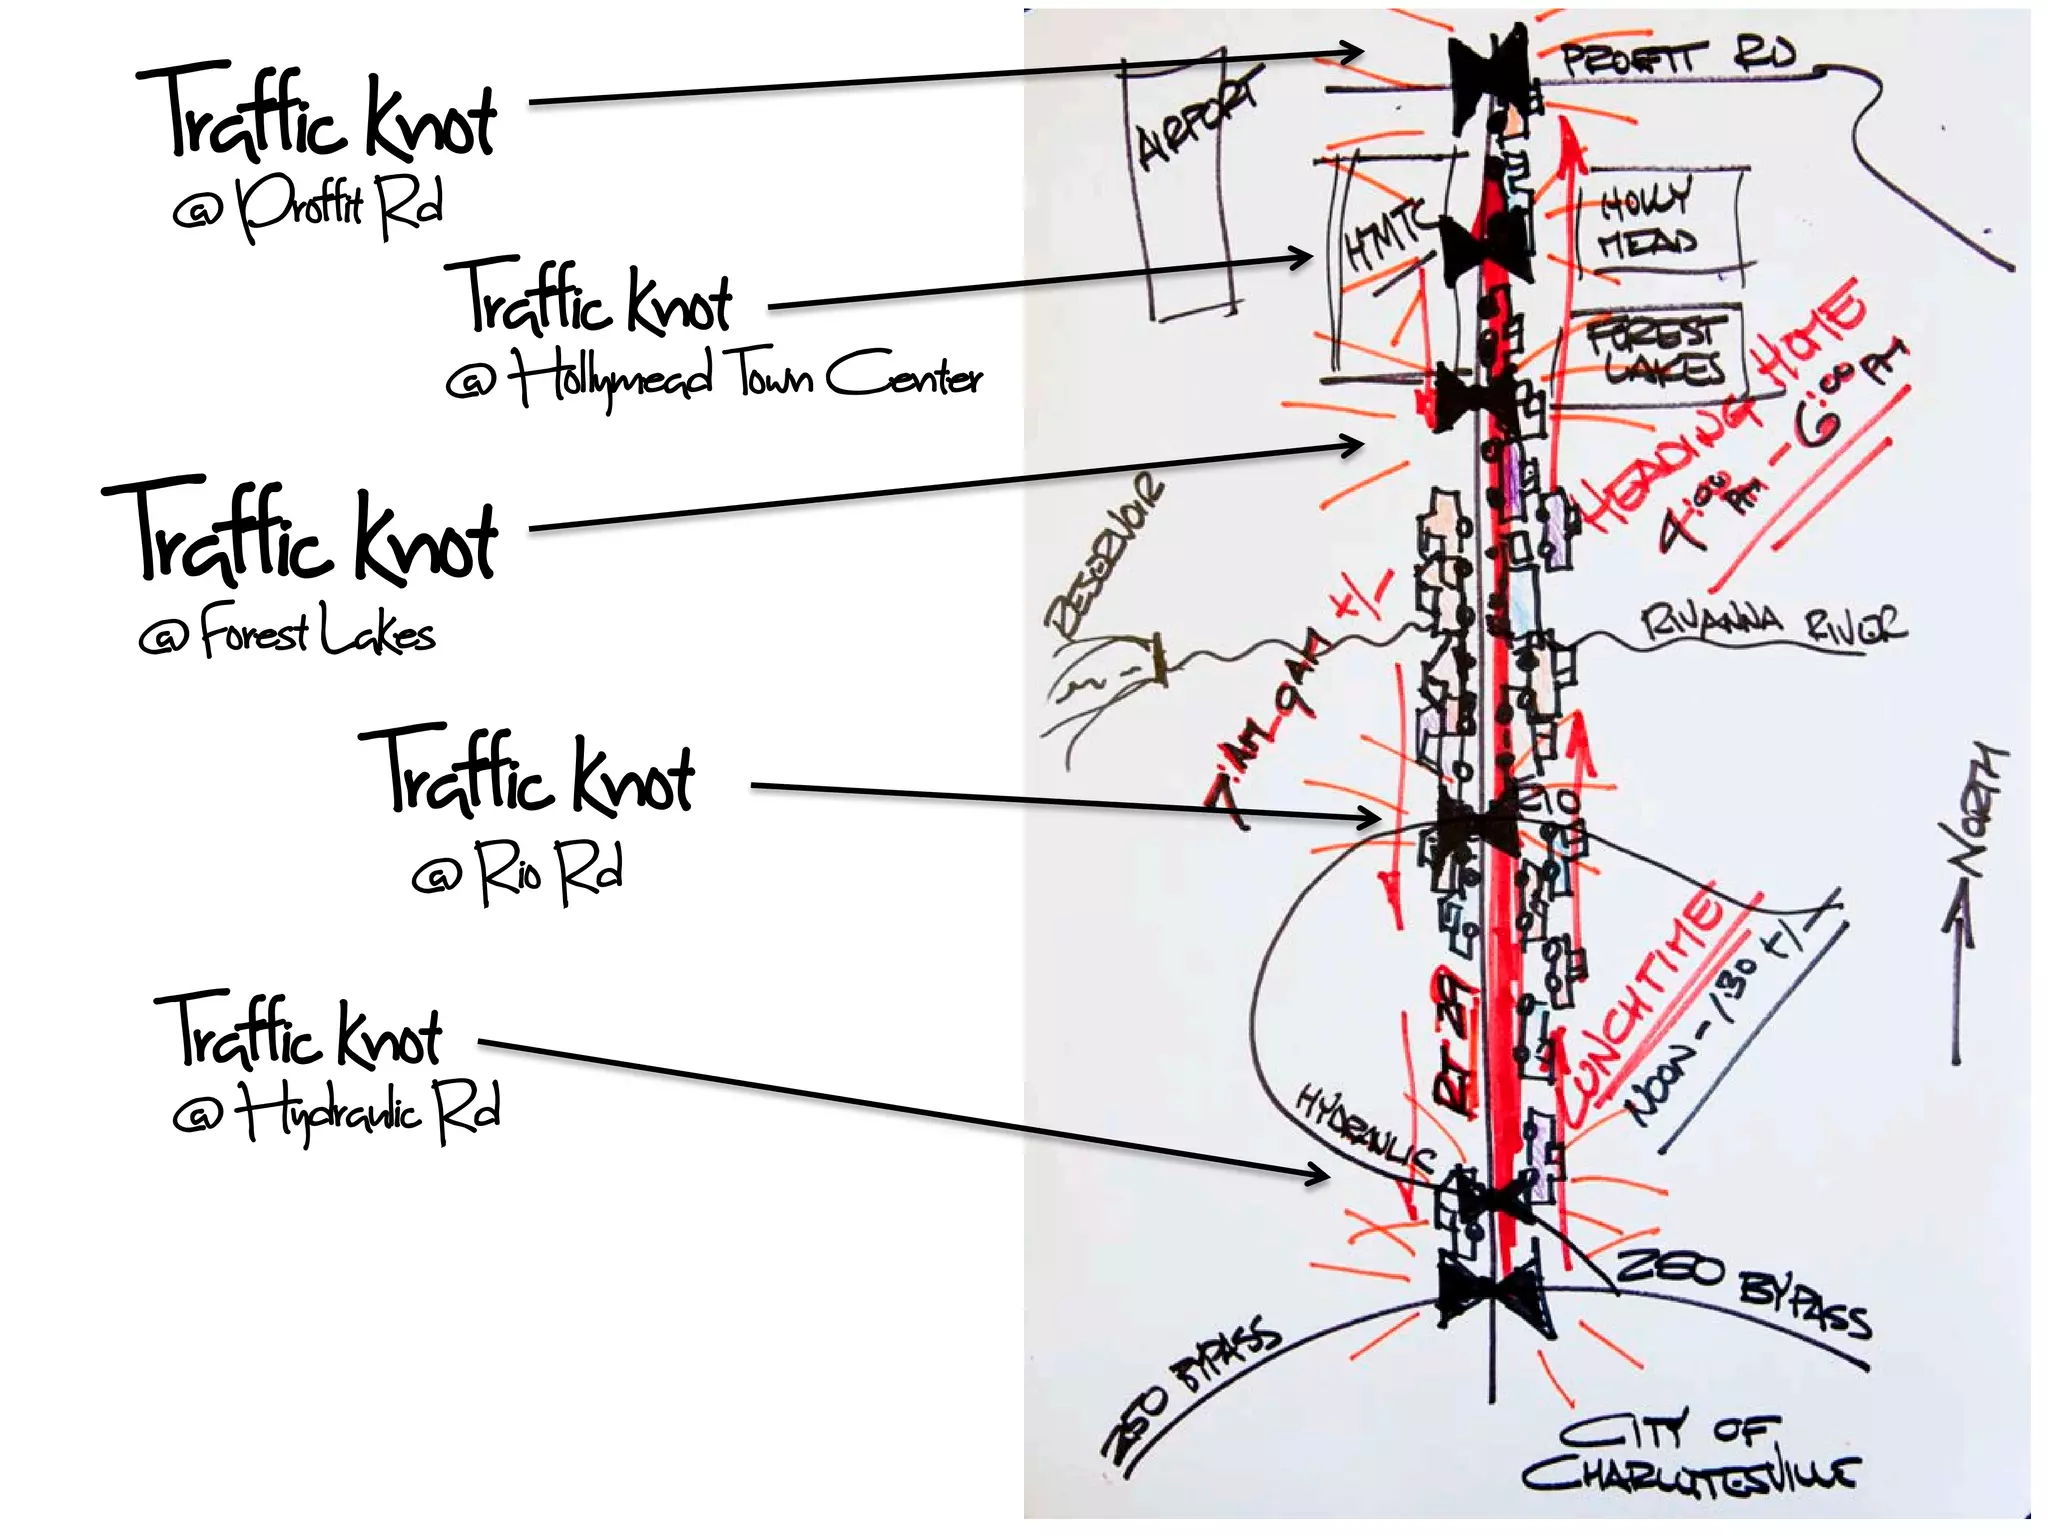 Traffic Knot
@ Proffit Rd
Traffic Knot
@ Hollymead Town Center
Traffic Knot
@ Forest Lakes
Traffic Knot
@ Rio Rd
Traffic Knot
@ Hydraulic Rd
PROFFIT RD
AIRPORT
HMTC
HOLLY
MEAD
FOREST
LAKES
HEADING HOME
4:00 PM - 6:00 PM
RESERVOIR
RIVANNA RIVER
7:AM - 9 AM +/-
RIO
NORTH
RT 29
LUNCHTIME
NOON - 130 +/-
HYDRAULIC
250 BYPASS
250 BYPASS
CITY OF
CHARLOTTESVILLE